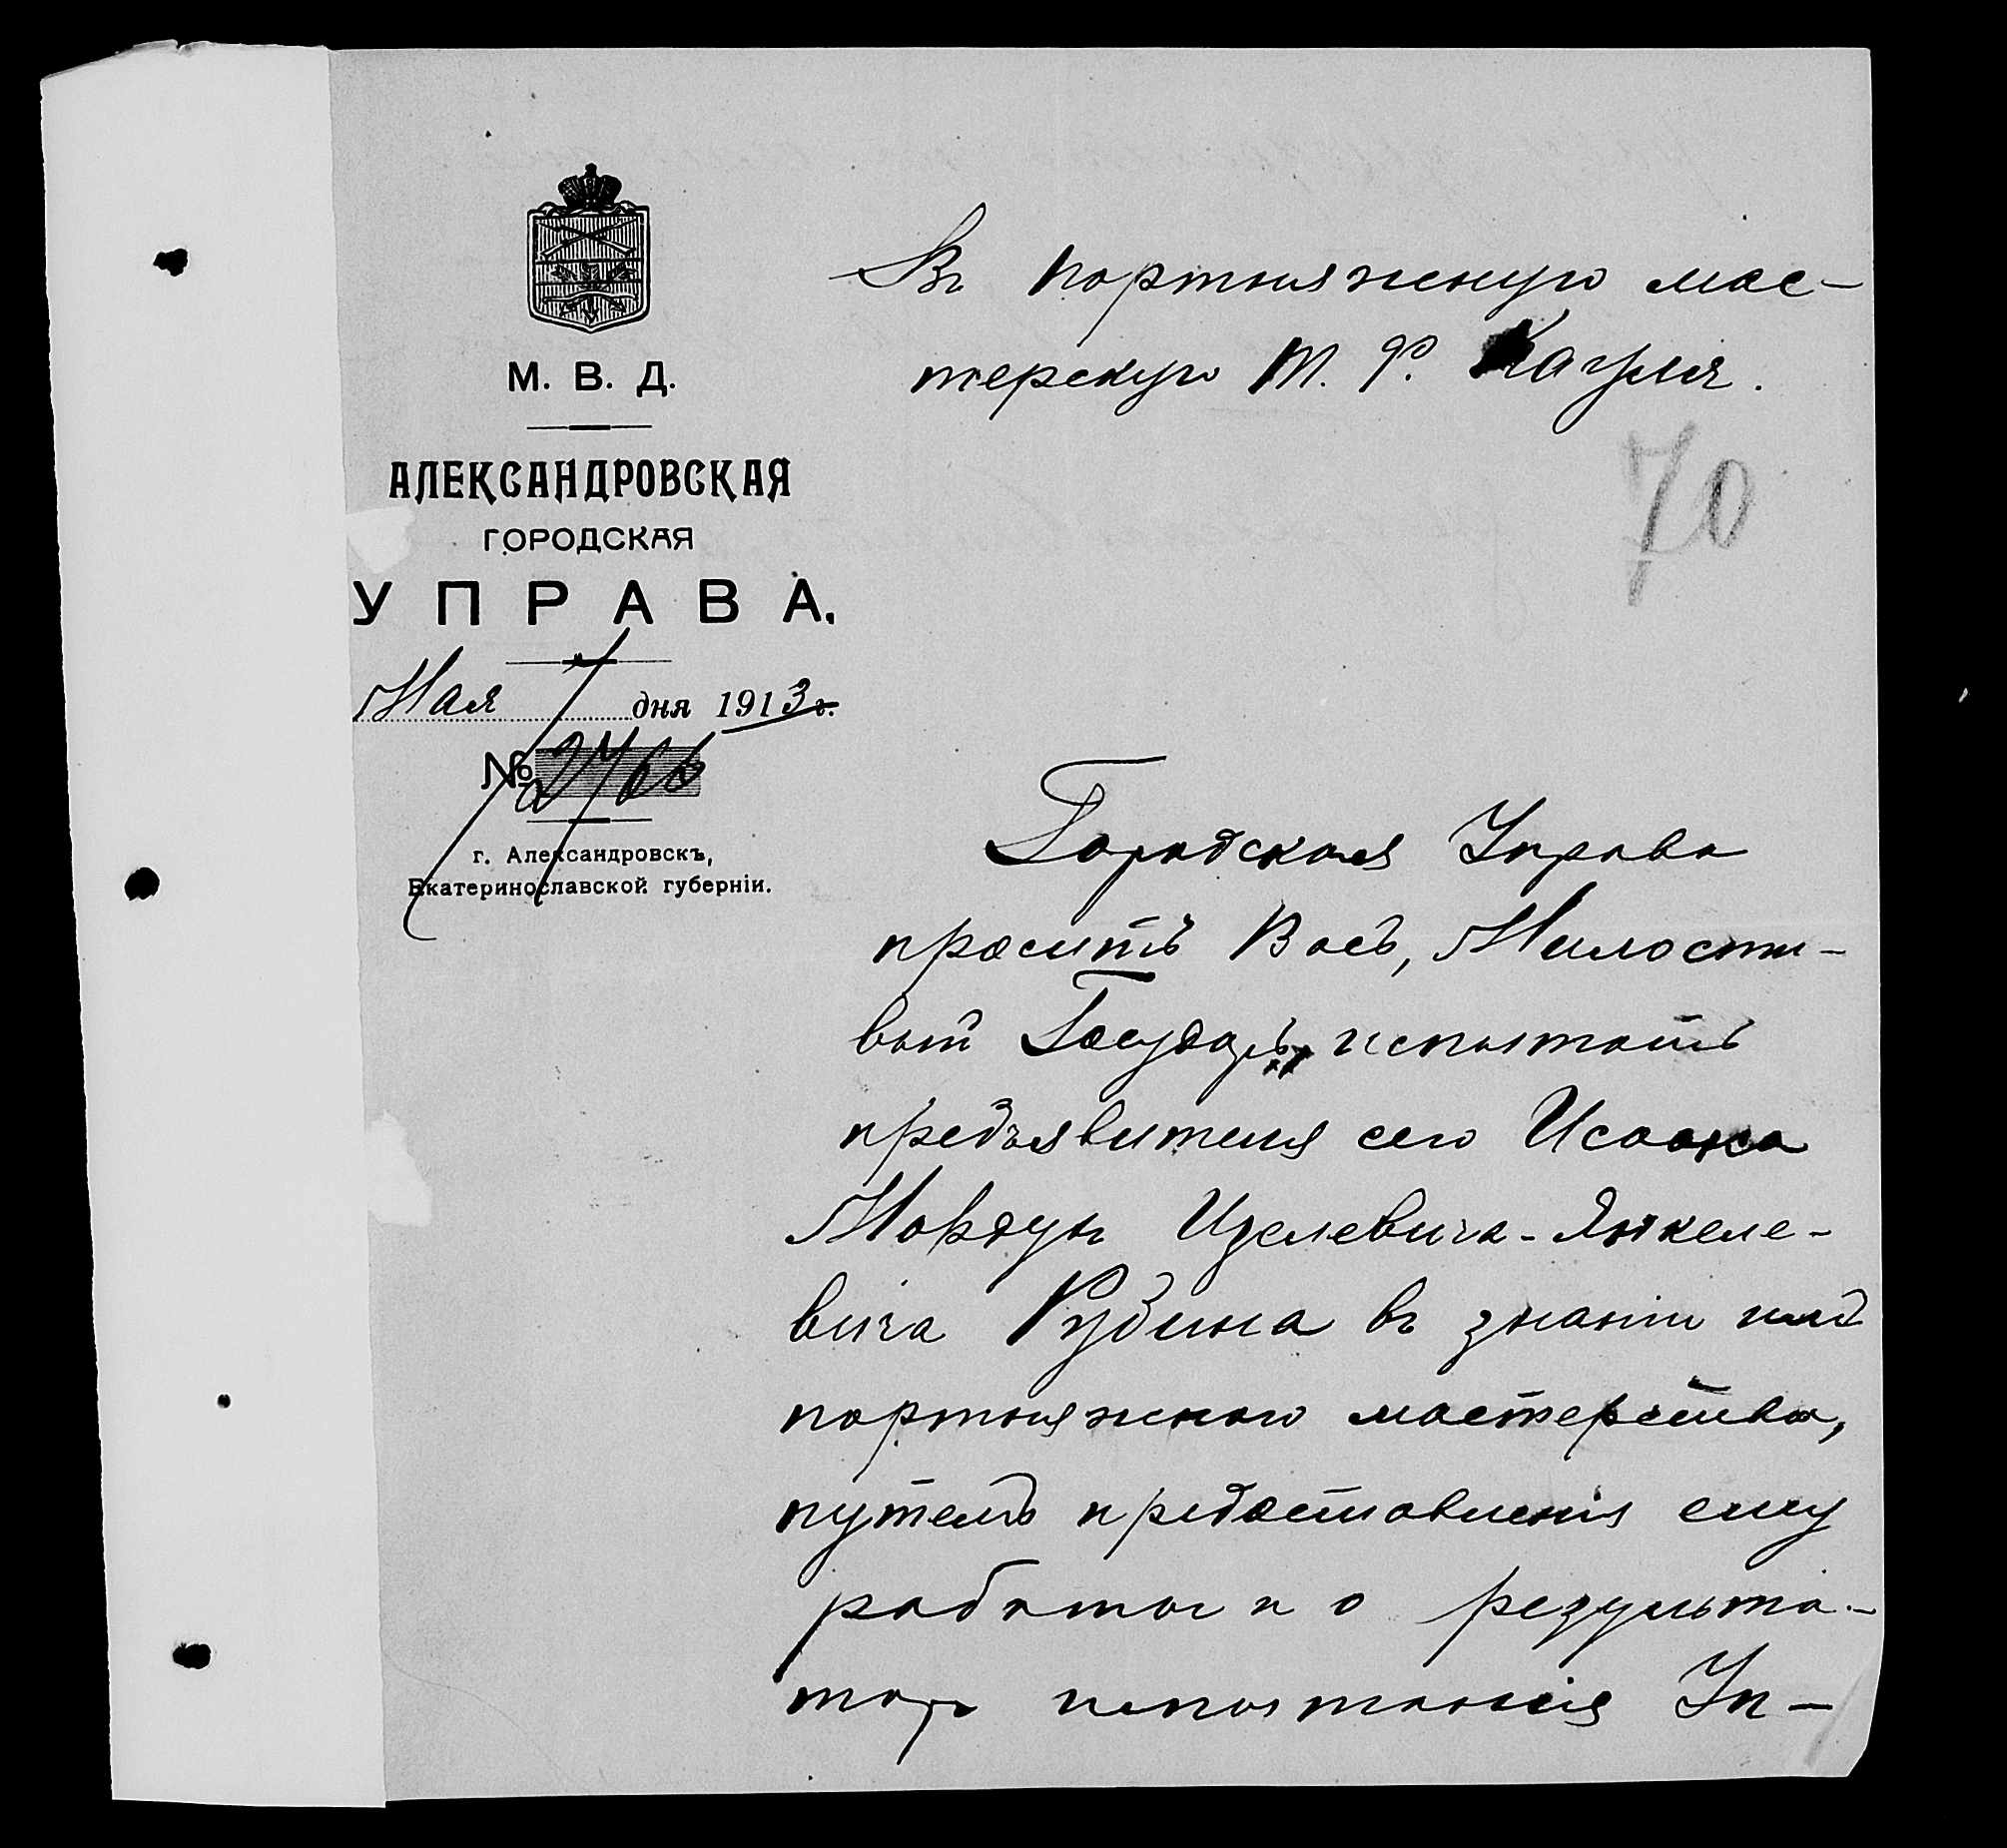 М. В. Д.
АЛЕКСАНДРОВСКАЯ
ГОРОДСКАЯ
УПРАВА.
Мая дня 1913 г.
№ 2766
г. Александровскъ,
Екатеринославской губерніи.
Въ портняжную мас-
терскую Т. Ф.
70
Городская Управа
проситъ Васъ, Милости-
вый Государь, испытать
предъявителя сего Исаака
Мордуха Ицелевича-Янкеле-
вича Рубина въ знаніи имъ
портняжнаго мастерства,
путемъ предоставленія ему
работы и о результа-
тахъ испытанія Уп-